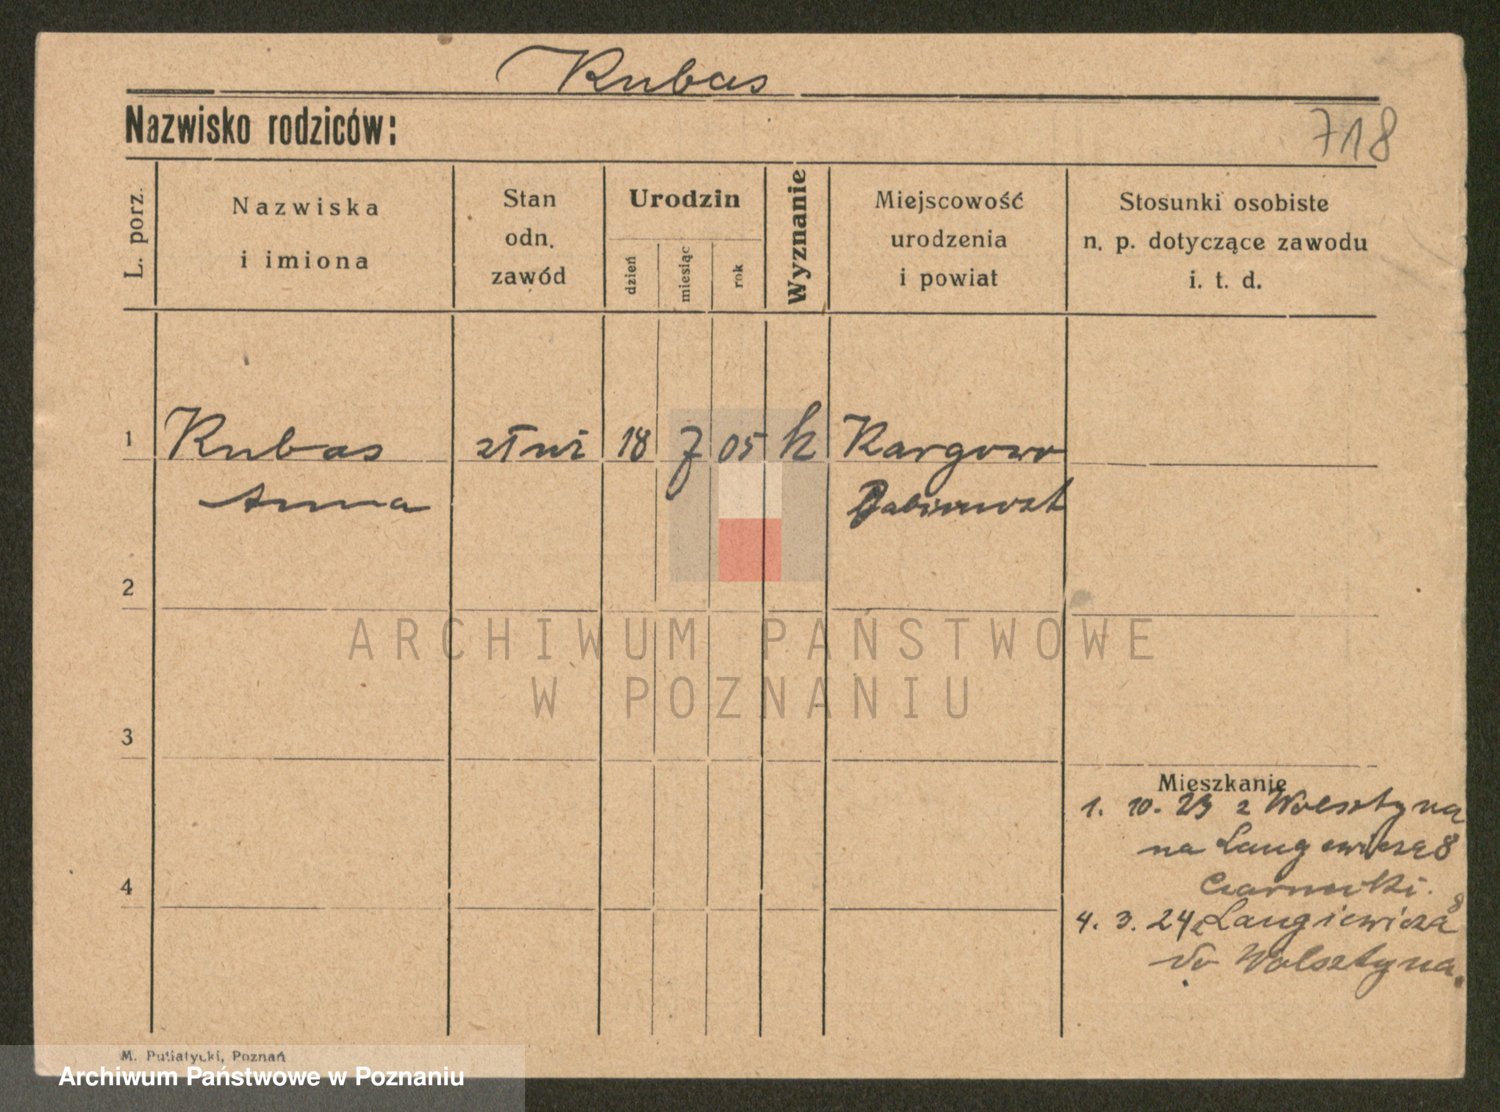 Kubas
Nazwisko rodziców:
718
L. porz.
Nazwiska
i imiona
Stan
odn.
zawód
Urodzin
dzień
miesiąc
rok
Wyznanie
Miejscowość
urodzenia
i powiat
Stosunki osobiste
n. p. dotyczące zawodu
i. t. d.
1
Kubas
18 7 05 k Kargowo
Anna
2
ARCHIWUM PAŃSTWOWE
W POZNANIU
3
Mieszkanie
1. 10. 23 z Wolsztyna
na Langiewicza 8
Czarnecki.
4
4. 3. 24 z Langiewicza 8
do Wolsztyna.
M. Putiatycki, Poznań
Archiwum Państwowe w Poznaniu